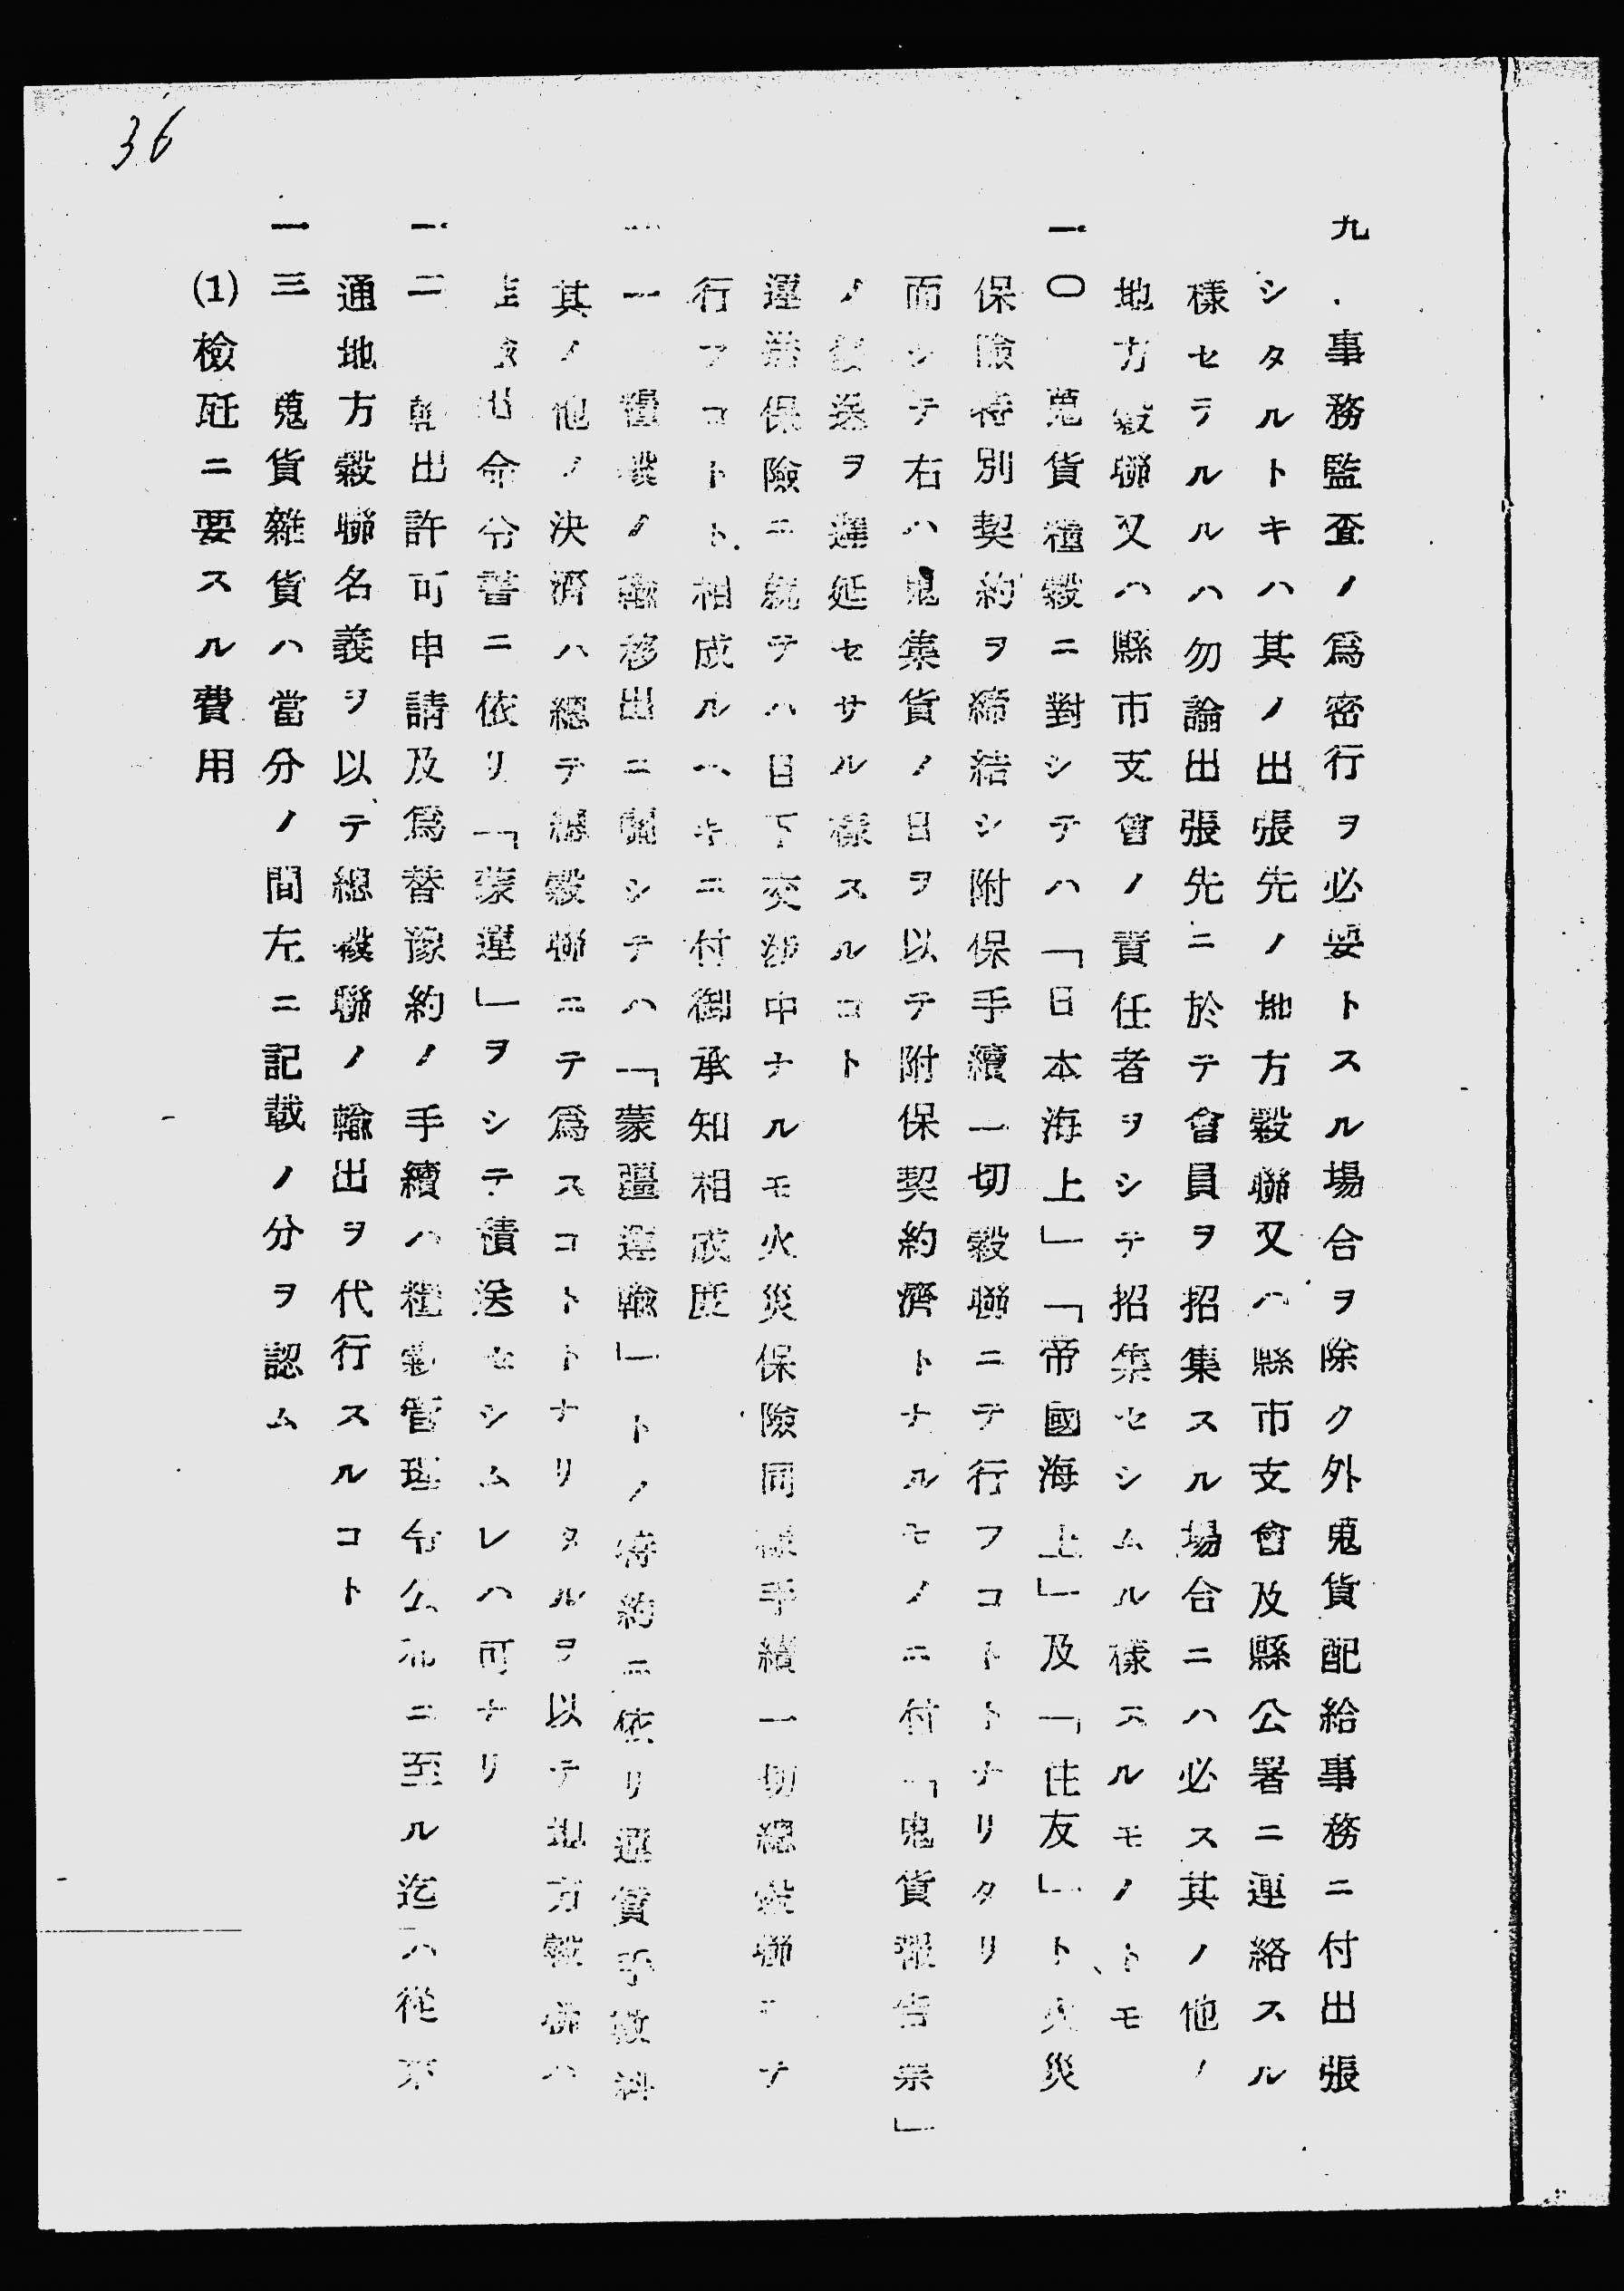 36
九.事務監査ノ爲密行ヲ必要トスル場合ヲ除ク外蒐貨配給事務ニ付出張
シタルトキハ其ノ出張先ノ地方穀聯又ハ縣市支會及縣公署ニ連絡スル
樣セラルルハ勿論出張先ニ於テ會員ヲ招集スル場合ニハ必ス其ノ他ノ
地方穀聯又ハ縣市支會ノ責任者ヲシテ招集セシムル樣スルモノトモ
一〇 蒐貨糧穀ニ對シテハ「日本海上」「帝國海上」及「住友」ト火災
保險特別契約ヲ締結シ附保手續一切穀聯ニテ行フコトトナリタリ
而シテ右ハ蒐集貨ノ日ヲ以テ附保契約濟トナルモノニ付「蒐貨報告票」
ノ發送ヲ遲延セサル樣スルコト
運送保險ニ就テハ目下交渉中ナルモ火災保險同樣手續一切總穀聯ニテ
行フコトト相成ルヘキニ付御承知相成度
一一 糧穀ノ輸移出ニ關シテハ「蒙疆運輸」トノ特約ニ依リ運賃手數料
其ノ他ノ決濟ハ總テ總穀聯ニテ爲スコトトナリタルヲ以テ地方穀聯ハ
出命令書ニ依リ「蒙運」ヲシテ積送セシムレハ可ナリ
一二 輸出許可申請及爲替豫約ノ手續ハ糧穀管理令公布ニ至ル迄ハ從來
通地方穀聯名義ヲ以テ總穀聯ノ輸出ヲ代行スルコト
一三 蒐貨雜貨ハ當分ノ間左ニ記載ノ分ヲ認ム
(1)檢瓩ニ要スル費用